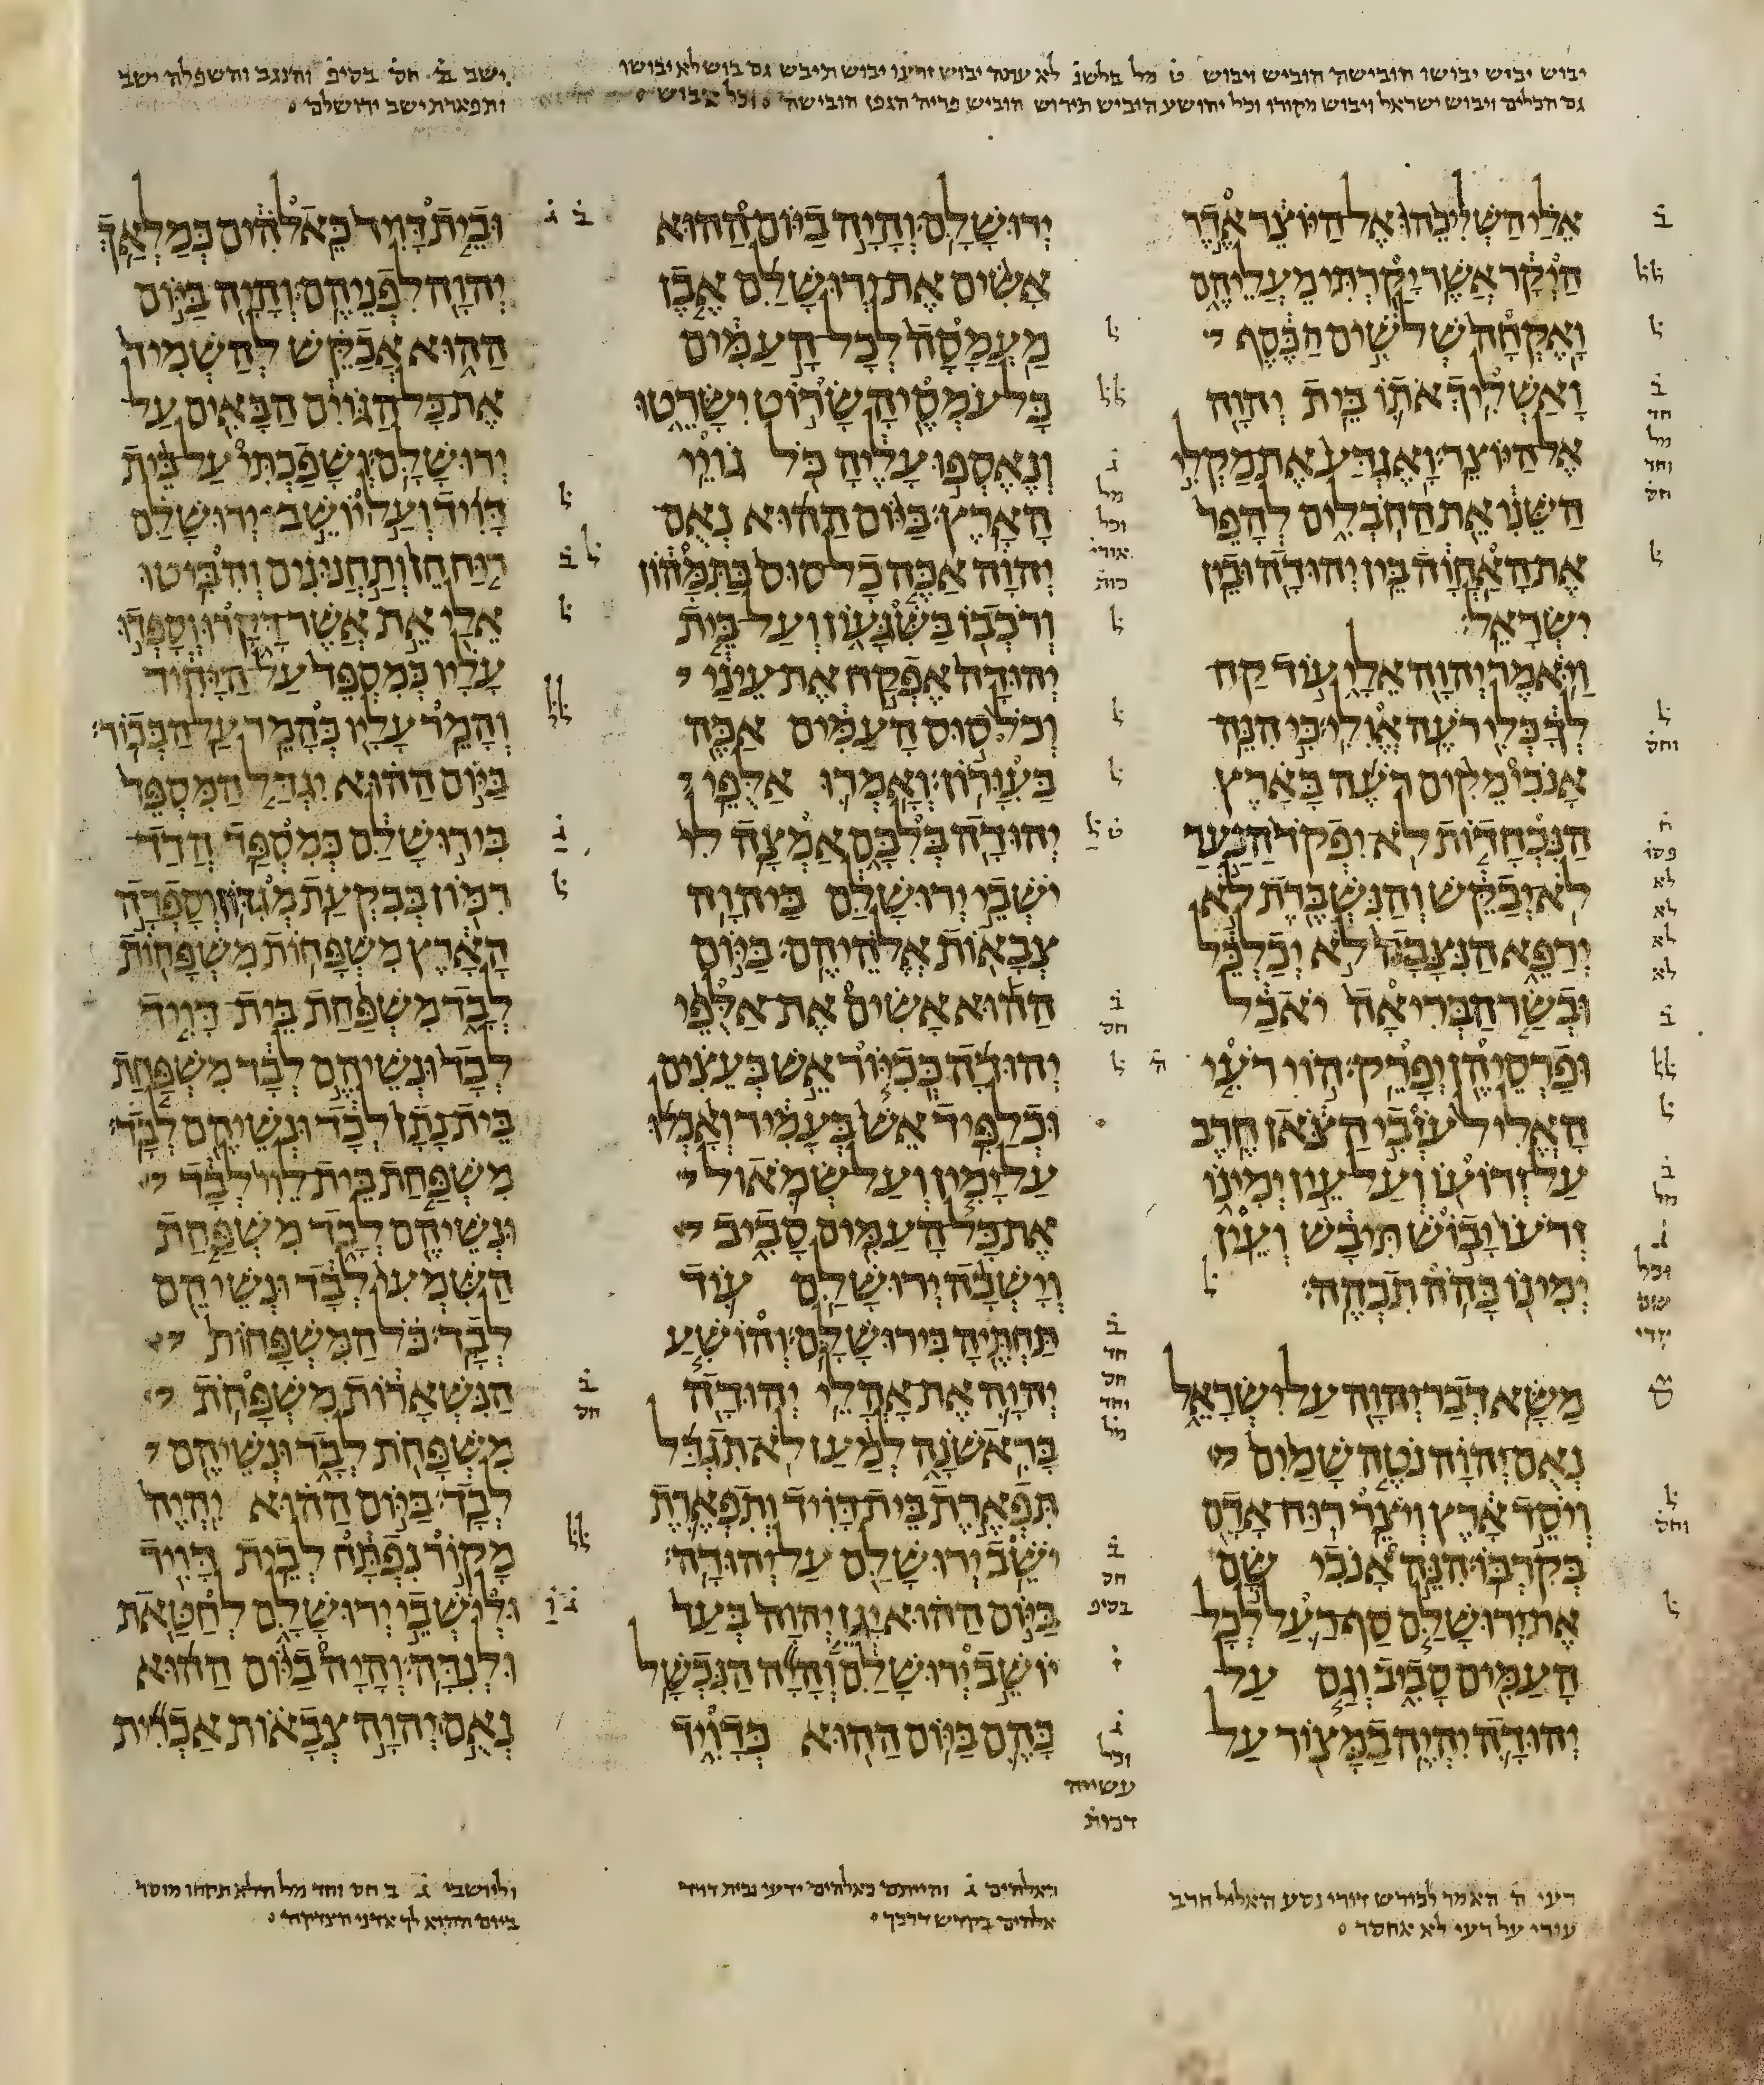 יבוש יביש יבושו הובישה הוביש ויבוש ט מל בלשנ לא ענתה יבוש זרעו יבוש תיבש גם בוש לא יבושו
גם הכלים ויבוש ישראל ויבוש מקורו וכל יהושע הוביש תירוש הוביש פריה הגפן הובישה וכל אבוש
ישב ב חס בסיפ והנגב והשפלה ישב
ותפארת ישב ירושלם
אלי השליכהו אל היוצר אדר
היקר אשר יקרתי מעליהם
ואקחה שלשים הכסף
ואשליך אתו בית יהוה
אל היוצר ואגדע את מקלי
השני את החבלים להפר
את האחוה בין יהודה ובין
ישראל
ויאמר יהוה אלי עוד קח
לך כלי רעה אולי כי הנה
אנכי מקים רעה בארץ
הנכחדות לא יפקד הנער
לא יבקש והנשברת לא
ירפא הנצבה לא יכלכל
ובשר הבריאה יאכל
ופרסיהן יפרק הוי רעי
האליל עזבי הצאן חרב
על זרועו ועל עין ימינו
זרעו יבוש תיבש ועין
ימינו כהה תכהה
משא דבר יהוה על ישראל
נאם יהוה נטה שמים
ויסד ארץ ויצר רוח אדם
בקרבו הנה אנכי שם
את ירושלם סף רעל לכל
העמים סביב וגם על
יהודה יהיה במצור על
ירושלם והיה ביום ההוא
אשים את ירושלם אבן
מעמסה לכל העמים
כל עמסיה שרוט ישרטו
ונאספו עליה כל גויי
הארץ ביום ההוא נאם
יהוה אכה כל סוס בתמהון
ורכבו בשגעון ועל בית
יהודה אפקח את עיני
וכל סוס העמים אכה
בעורון ואמרו אלפי
יהודה בלבם אמצה לי
ישבי ירושלם ביהוה
צבאות אלהיהם ביום
ההוא אשים את אלפי
יהודה ככיור אש בעצים
וכלפיד אש בעמיר ואכלו
על ימין ועל שמאול
את כל העמים סביב
וישבה ירושלם עוד
תחתיה בירושלם והושע
יהוה את אהלי יהודה
בראשנה למען לא תגדל
תפארת בית דויד ותפארת
ישב ירושלם על יהודה
ביום ההוא יגן יהוה בעד
יושב ירושלם והיה הנכשל
בהם ביום ההוא כדויד
ובית דויד כאלהים כמלאך
יהוה לפניהם והיה ביום
ההוא אבקש להשמיד
את כל הגוים הבאים על
ירושלם ושפכתי על בית
דויד ועל יושב ירושלם
רוח חן ותחנונים והביטו
אלי את אשר דקרו וספדו
עליו כמספד על היחיד
והמר עליו כהמר על הבכור
ביום ההוא יגדל המספד
בירושלם כמספד הדד
רמון בבקעת מגדון וספדה
הארץ משפחות משפחות
לבד משפחת בית דויד
לבד ונשיהם לבד משפחת
בית נתן לבד ונשיהם לבד
משפחת בית לוי לבד
ונשיהם לבד משפחת
השמעי לבד ונשיהם
לבד כל המשפחות
הנשארות משפחת
משפחת לבד ונשיהם
לבד ביום ההוא יהיה
מקור נפתח לבית דויד
ולישבי ירושלם לחטאת
ולנדה והיה ביום ההוא
נאם יהוה צבאות אכרית
רעי ה האמר לכורש דודי נסע האליל חרב
עורי על רעי לא אחסר
כאלהים ג והייתם כאלהים ידעי ובית דויד
אלהים בקדש דרכך
וליושבי ג ב חס וחד מל הלא תקחו מוסר
ביום ההוא לך אדני הצדקה